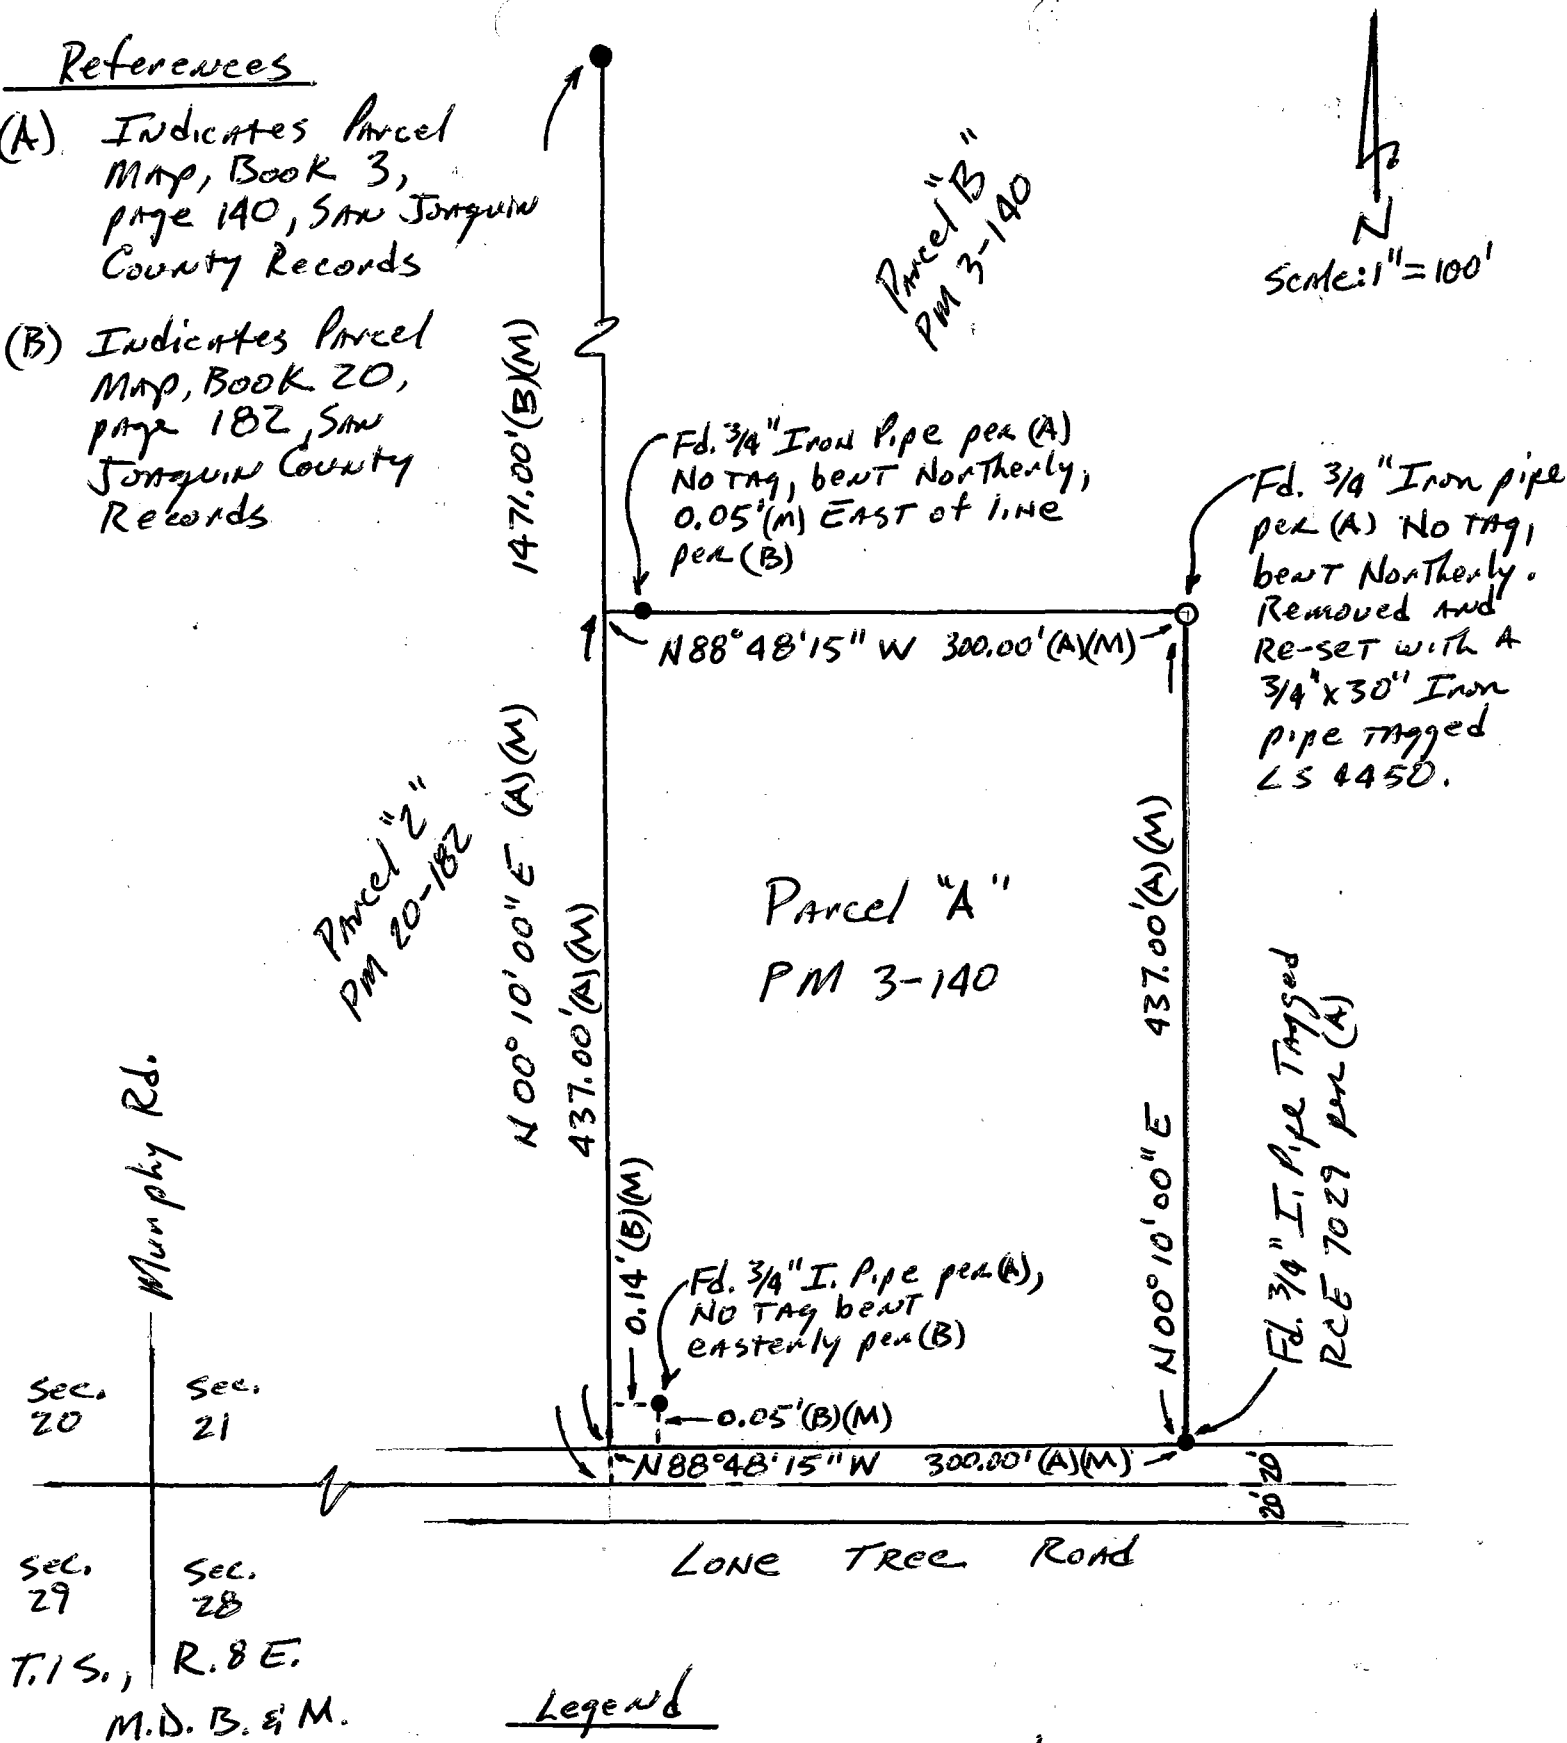 References
(A) Indicates Parcel
Map, Book 3,
page 140, San Joaquin
County Records
(B) Indicates Parcel
Map, Book 20,
page 182, San
Joaquin County
Records
Parcel "B"
PM 3-140
N
Scale: 1" = 100'
1471.00' (B)(M)
Fd. 3/4" Iron Pipe per (A)
No Tag, bent Northerly,
0.05' (M) East of line
per (B)
Fd. 3/4" Iron pipe
per (A) No Tag,
bent Northerly.
Removed and
Re-set with a
3/4" x 30" Iron
pipe Tagged
LS 4450.
N 88° 48' 15" W 300.00' (A)(M)
N 00° 10' 00" E (A)(M)
437.00' (A)(M)
Parcel "2"
PM 20-182
Parcel "A"
PM 3-140
N 00° 10' 00" E 437.00' (A)(M)
Fd. 3/4" I. Pipe Tagged
RCE 7029 per (A)
Murphy Rd.
0.14' (B)(M)
Fd. 3/4" I. Pipe per (A),
No Tag bent
easterly per (B)
0.05' (B)(M)
N 88° 48' 15" W 300.00' (A)(M)
20' 20'
Sec. 20
Sec. 21
Lone Tree Road
Sec. 29
Sec. 28
T. 1 S., R. 8 E.
M.D. B. & M.
Legend